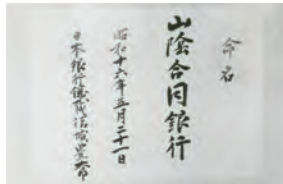 命名
山陰合同銀行
昭和十六年五月二十一日
日本銀行総裁結城豊太郎